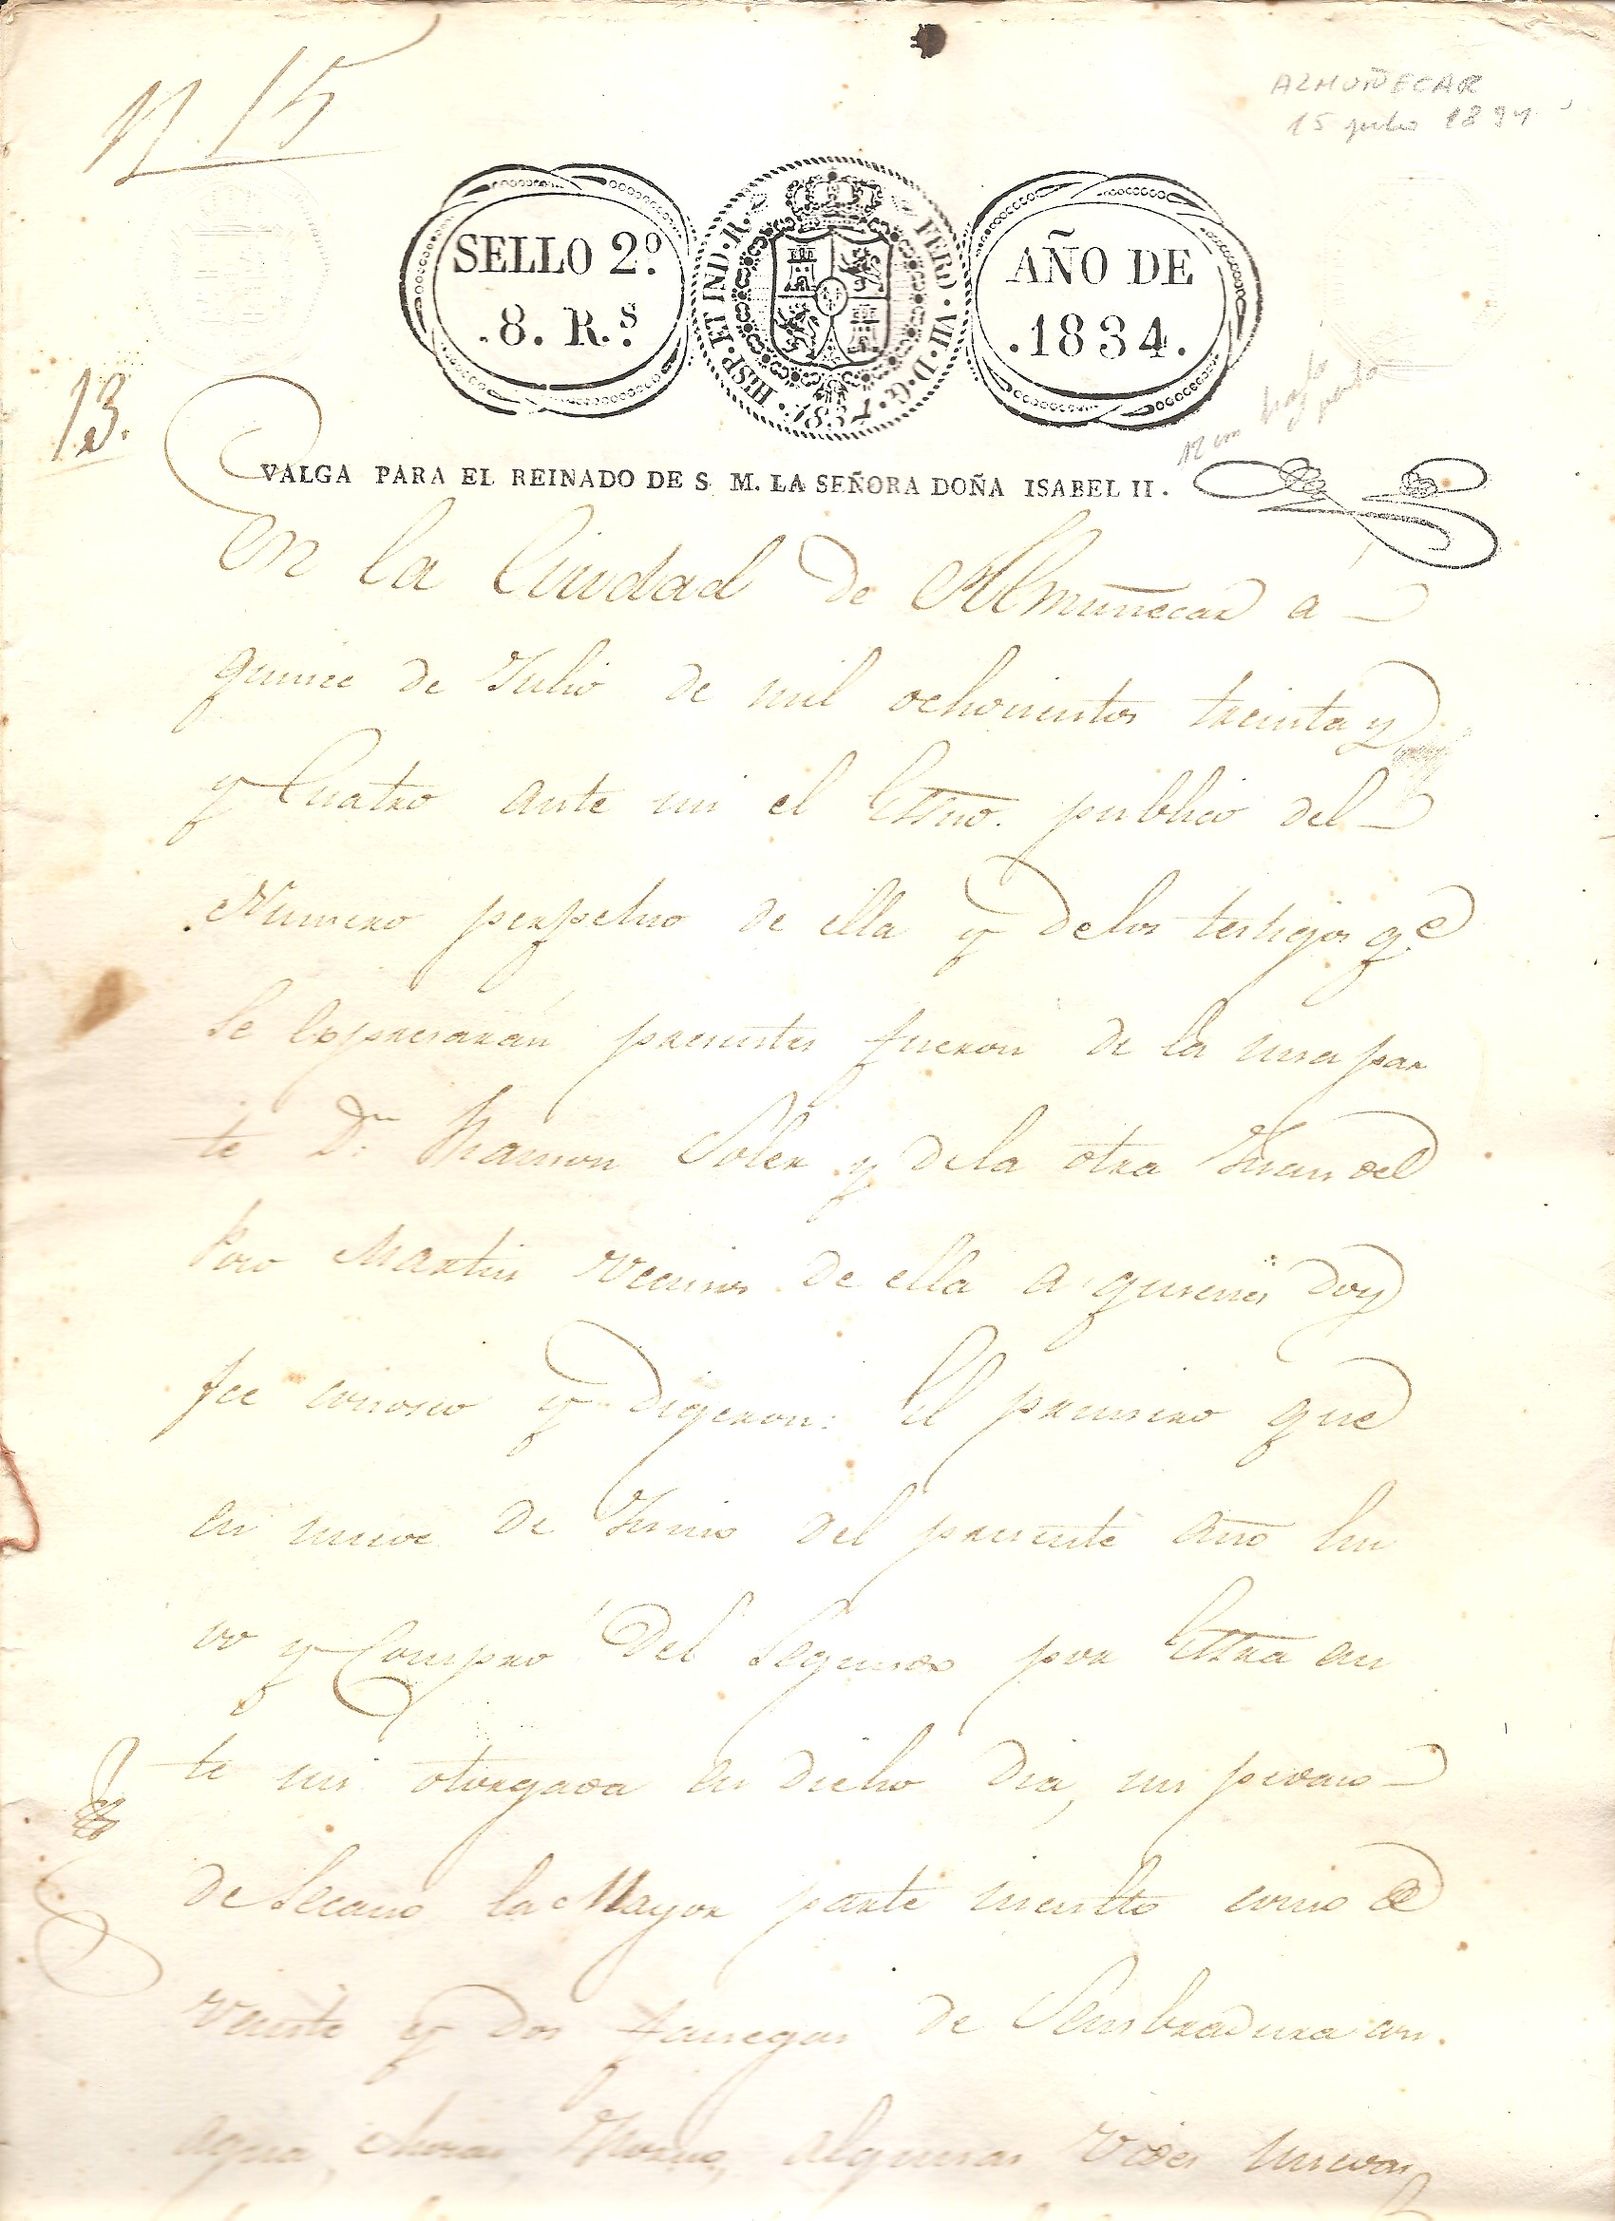 N. 15
ALMUÑECAR
15 julio 1834
SELLO 2º.
.8. R.s
HISP. ET IND. R. FERD. VII. D. G. 1834.
AÑO DE
.1834.
13.
VALGA PARA EL REINADO DE S. M. LA SEÑORA DOÑA ISABEL II.
En la Ciudad de Almuñecar a
quince de Julio de mil ochocientos treinta y
y Cuatro ante mi el Essno. publico del
Numero perpetuo de ella y delos testigos q.e
se Expresarán presentes fueron de la una par
te Dn. Ramon Soler y dela otra Juan del
Poro Martin vecinos de ella a quienes doy
fee conosco y Digeron: El primero que
en nueve de Junio del presente año hu
vo y Compró del Segundo por Essra an
te mi otorgada en dicho dia, un pedaso
de Secano la Mayor parte inculto como de
veinte y dos fanegas de Sembradura con
agua, Horno, algunas vides nuevas